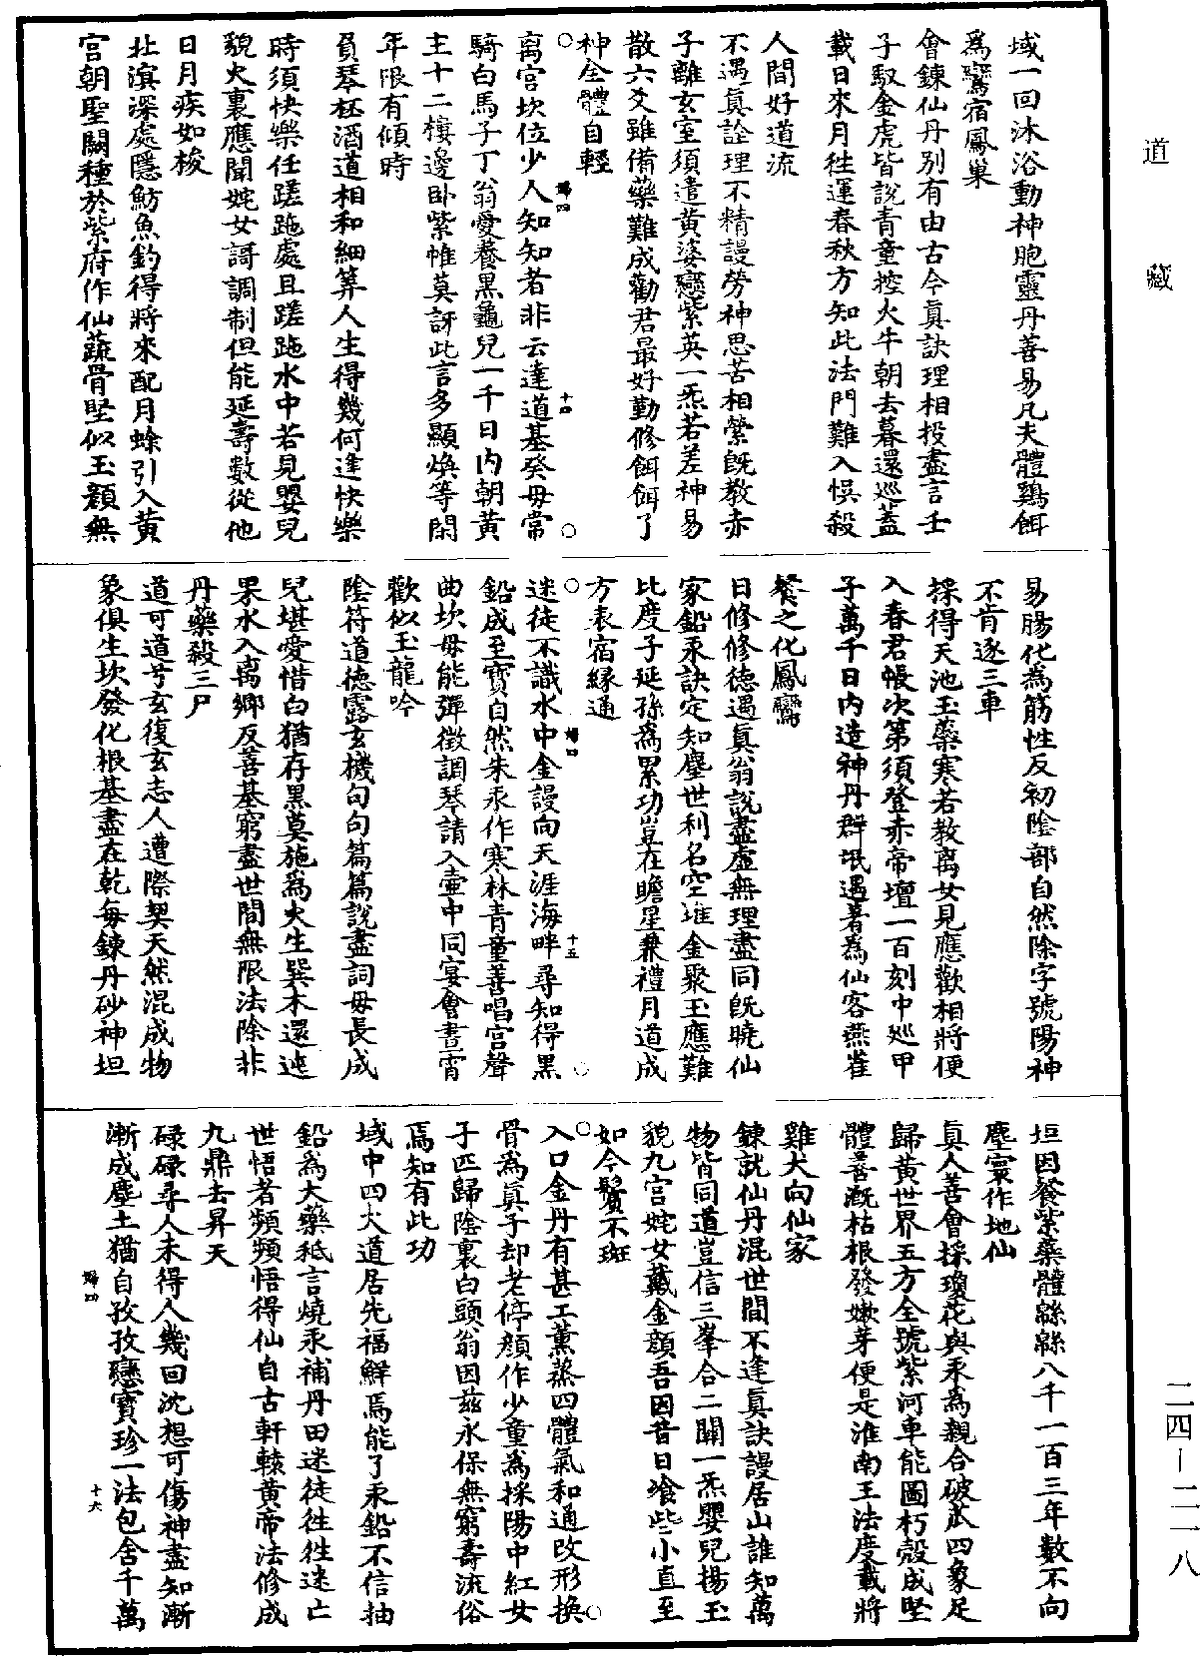 道藏
域一回沐浴動神胞靈丹善易凡夫體鷄餌
爲鸞宿鳳巢
會鍊仙丹別有由古今眞訣理相投盡言壬
子馭金虎皆說青童控火牛朝去暮還巡蓋
載日來月徃運春秋方知此法門難入悞殺
人間好道流
不遇眞詮理不精謾勞神思苦相縈既教赤
子離玄室須遣黄婆戀紫英一炁若差神易
散六爻雖備藥難成勸君最好勤修餌餌了
神全體自輕
離宮坎位少人知知者非云達道基癸母常
騎白馬子丁翁愛養黑龜兒一千日内朝黄
主十二樓邊卧紫帷莫訝此言多顯煥等閑
年限有傾時
負琴柸酒道相和細筭人生得幾何逢快樂
時須快樂任蹉跎處且蹉跎水中若見嬰兒
貌火裏應聞姹女謌調制但能延壽數從他
日月疾如梭
北溟深處隱魴魚釣得將來配月蜍引入黄
宮朝聖闕種於紫府作仙蔬骨堅似玉顏無
易腸化爲筋性反初陰部自然除字號陽神
不肯逐三車
採得天池玉蘂寒若教离女見應歡相將便
入春君帳次第須登赤帝壇一百刻中巡甲
子萬千日内造神丹群氓遇著爲仙客燕雀
餐之化鳳鸞
日修修德遇眞翁說盡虛無理盡同既曉仙
家鉛汞訣定知塵世利名空堆金聚玉應難
比度子延孫爲累功豈在瞻星兼禮月道成
方表宿緣通
迷徒不識水中金謾向天涯海畔尋知得黑
鉛成至寶自然朱汞作寒林青童善唱宮聲
曲坎母能彈徴調琴請入壷中同宴會晝宵
歡似玉龍吟
陰符道德露玄機句句篇篇說盡詞母長成
兒堪愛惜白猶存黑莫施爲火生巽木還迍
果水入离鄉反善基窮盡世間無限法除非
丹藥殺三尸
道可道兮玄復玄志人遭際契天然混成物
象俱生坎發化根基盡在乾每鍊丹砂神坦
坦因餐紫藥體緜緜八千一百三年數不向
塵寰作地仙
眞人善會採瓊花與汞爲親合破瓜四象足
歸黄世界五方全號紫河車能圖朽殼成堅
體善漑枯根發嫩芽便是淮南王法度載將
雞犬向仙家
鍊就仙丹混世間不逢眞訣謾居山誰知萬
物皆同道豈信三峯合二關一炁嬰兒揚玉
貌九宮姹女戴金顏吾因昔日飡些小直至
如今鬢不斑
入口金丹有甚工薰蒸四體氣和通改形換
骨爲眞子却老停顏作少童爲採陽中紅女
子匹歸陰裏白頭翁因茲永保無窮壽流俗
焉知有此功
域中四大道居先福鮮焉能了汞鉛不信抽
鉛爲大藥秪言燒汞補丹田迷徒徃徃迷亡
世悟者頻頻悟得仙自古軒轅黄帝法修成
九鼎去昇天
碌碌尋人未得人幾回沈想可傷神盡知漸
漸成塵土猶自孜孜戀寶珍一法包含千萬
歸四
十四
歸四
十五
歸四
十六
二四-二一八